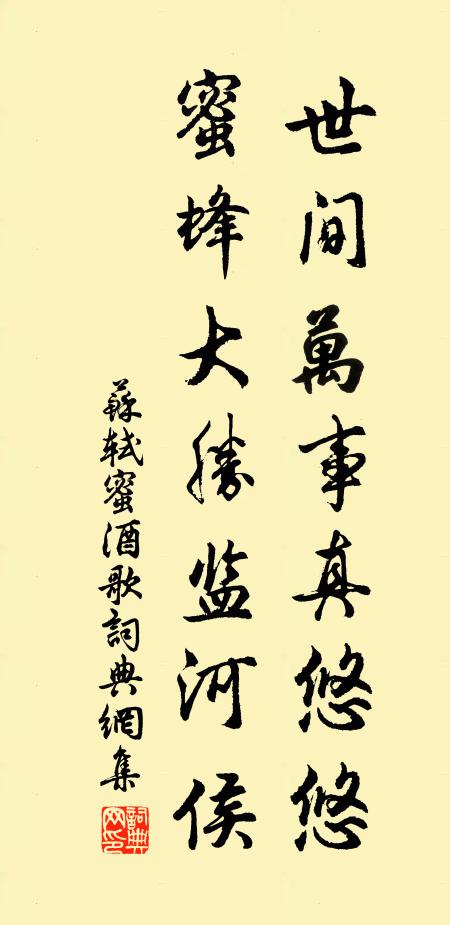 世间萬事真悠悠
蜜蜂大勝监河侯
蘇轼蜜酒歌詞典網集
詞典網印